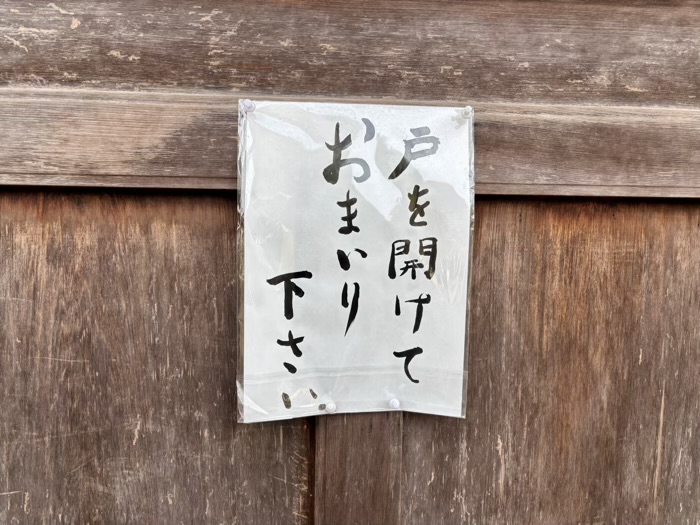 戸を開けて
おまいり
下さい